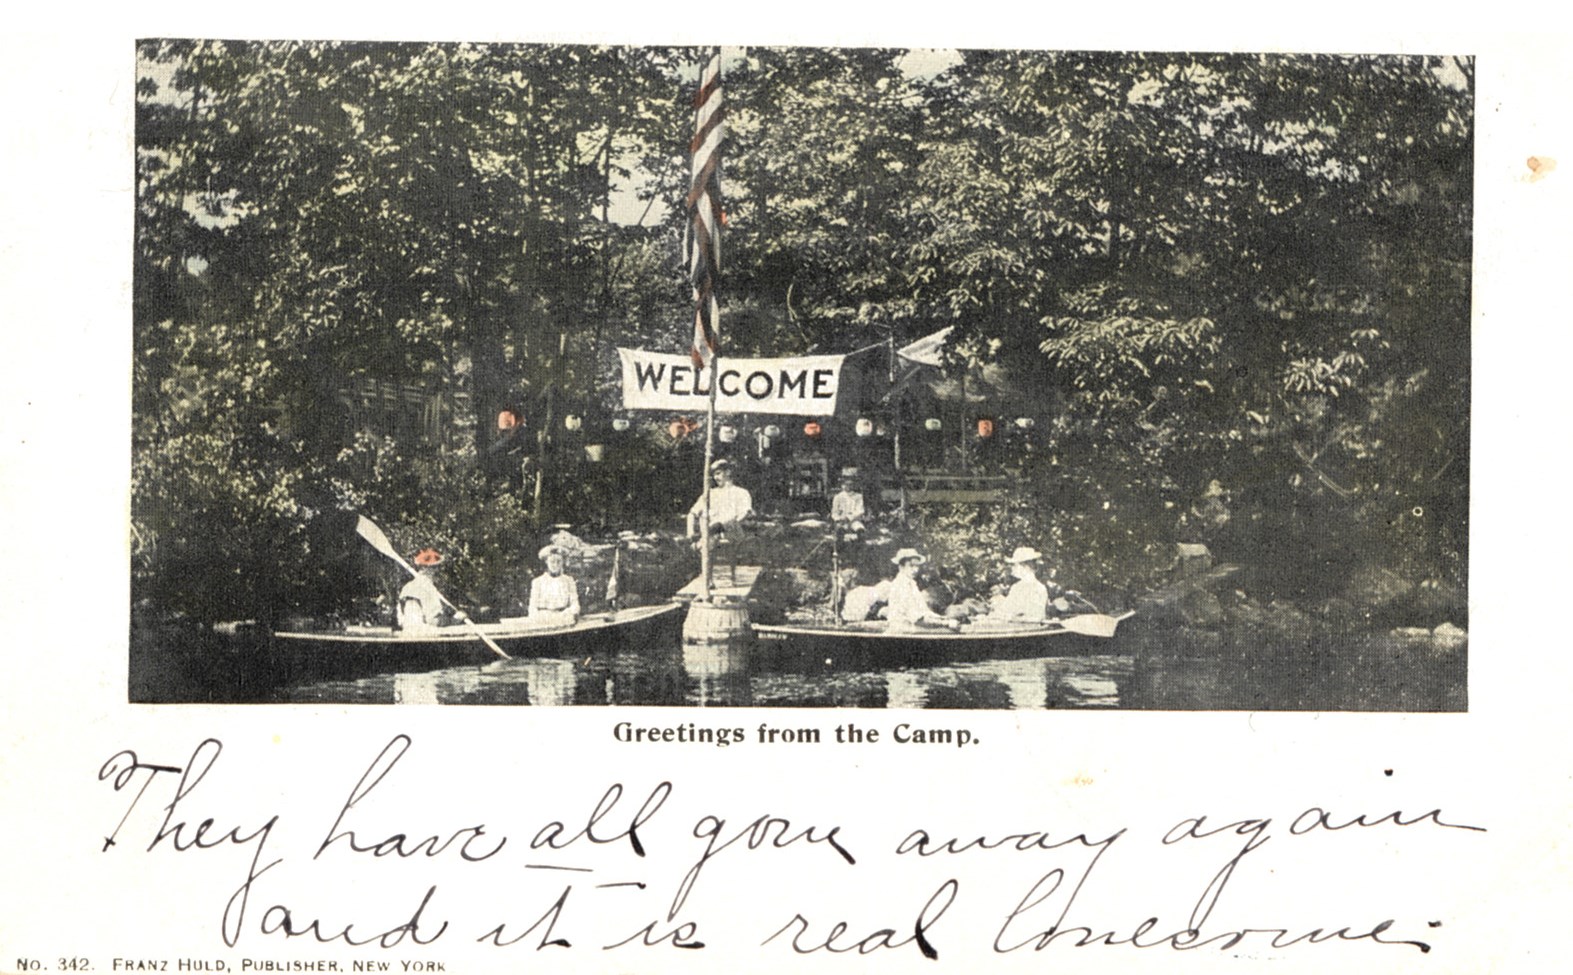 WELCOME
Greetings from the Camp.
They have all gone away again
and it is real lonesome.
No. 342. FRANZ HULD, PUBLISHER, NEW YORK